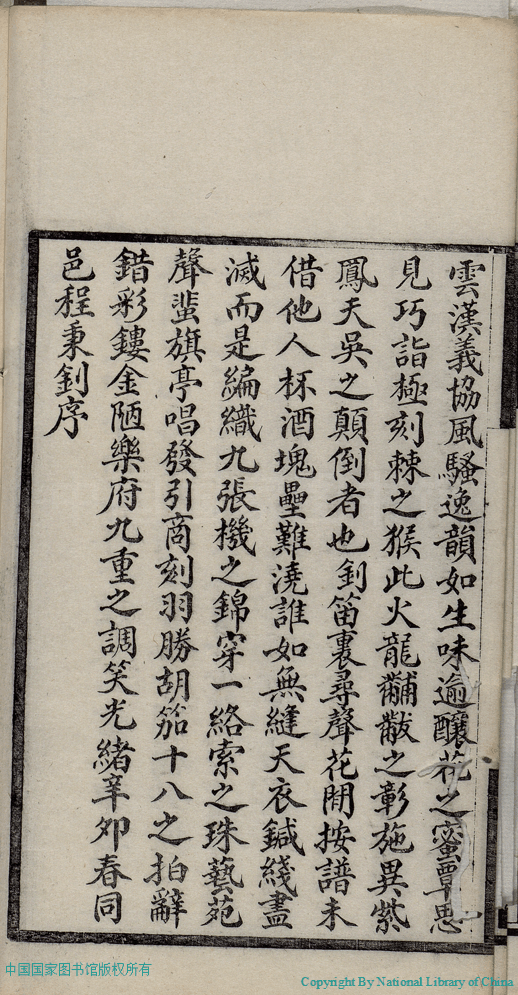 雲漢義協風騷逸韻如生味逾釀花之蜜覃思
見巧詣極刻棘之猴此火龍黼黻之彰施異紫
鳳天吳之顛倒者也釗笛裏尋聲花間按譜未
借他人杯酒塊壘難澆誰如無縫天衣鍼綫盡
滅而是編織九張機之錦穿一絡索之珠藝苑
聲蜚旗亭唱發引商刻羽勝胡笳十八之拍辭
錯彩鏤金陋樂府九重之調笑光緒辛卯春同
邑程秉釗序
中国国家图书馆版权所有
Copyright By National Library of China